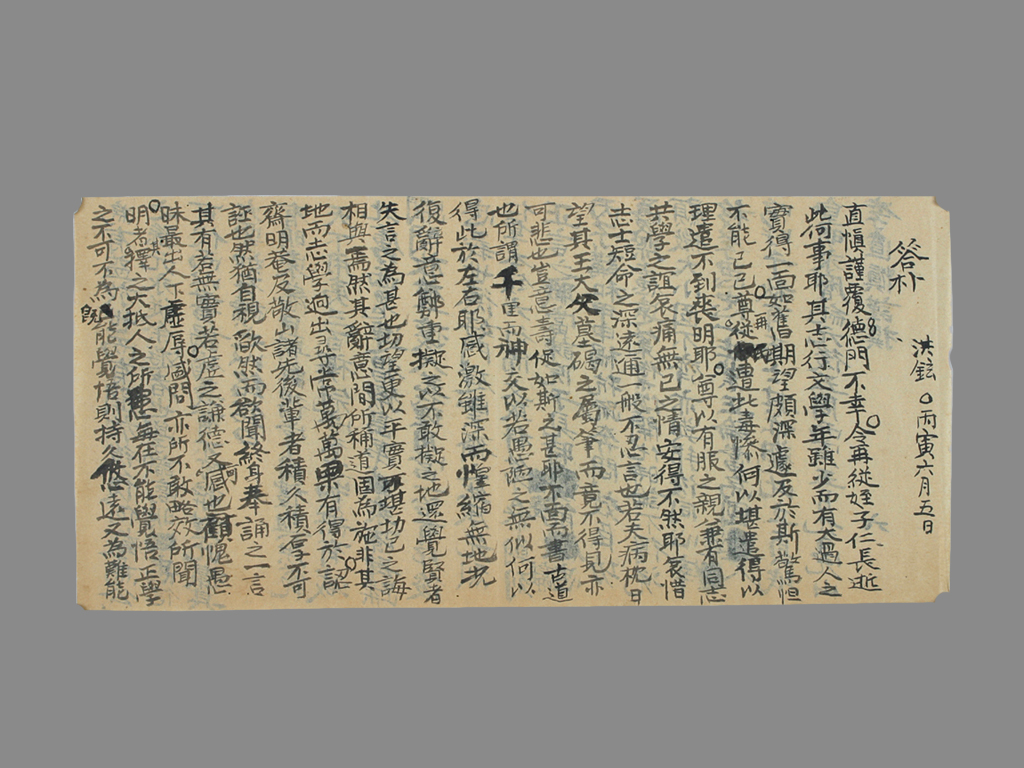 答朴 洪鉉 丙寅六月五日
直愼謹覆德門不幸令再從姪子仁長逝
此何事耶其志行文學年雖少而有大過人之
實得一面如舊期望頗深遽及於斯驚怛
不能已已尊從再遭此毒慘何以堪遣得以
理遣不到喪明耶尊以有服之親兼有同志
共學之誼哀痛無已之情安得不然耶哀惜
志士短命之深遠通一般不忍言也若夫病枕日
望其王大父墓碣之屬筆而竟不得見亦
可悲也豈意壽促如斯之甚耶不面而書古道
也所謂千里而神交以若愚陋之無似何以
得此於左右耶感激雖深而惶縮無地況
復辭意鄭重擬之以不敢擬之地還覺賢者
失言之爲甚也切望更以平實切已之誨
相與焉然其辭意間所稱道固爲施非其
地而志學逈出尋常萬萬果有得於
齋明菴及敬山諸先後輩者積久積厚不可
誣也然猶自視欿然而欲聞終身奉誦之一言
其有若無實若虛之誦德又何感也顧愧愚
昧最出人下虛辱俯問亦所不敢略效所聞
明者釋之大抵人之所患每在不能覺悟正學
之不可不爲能覺悟則持久悠遠又爲難能